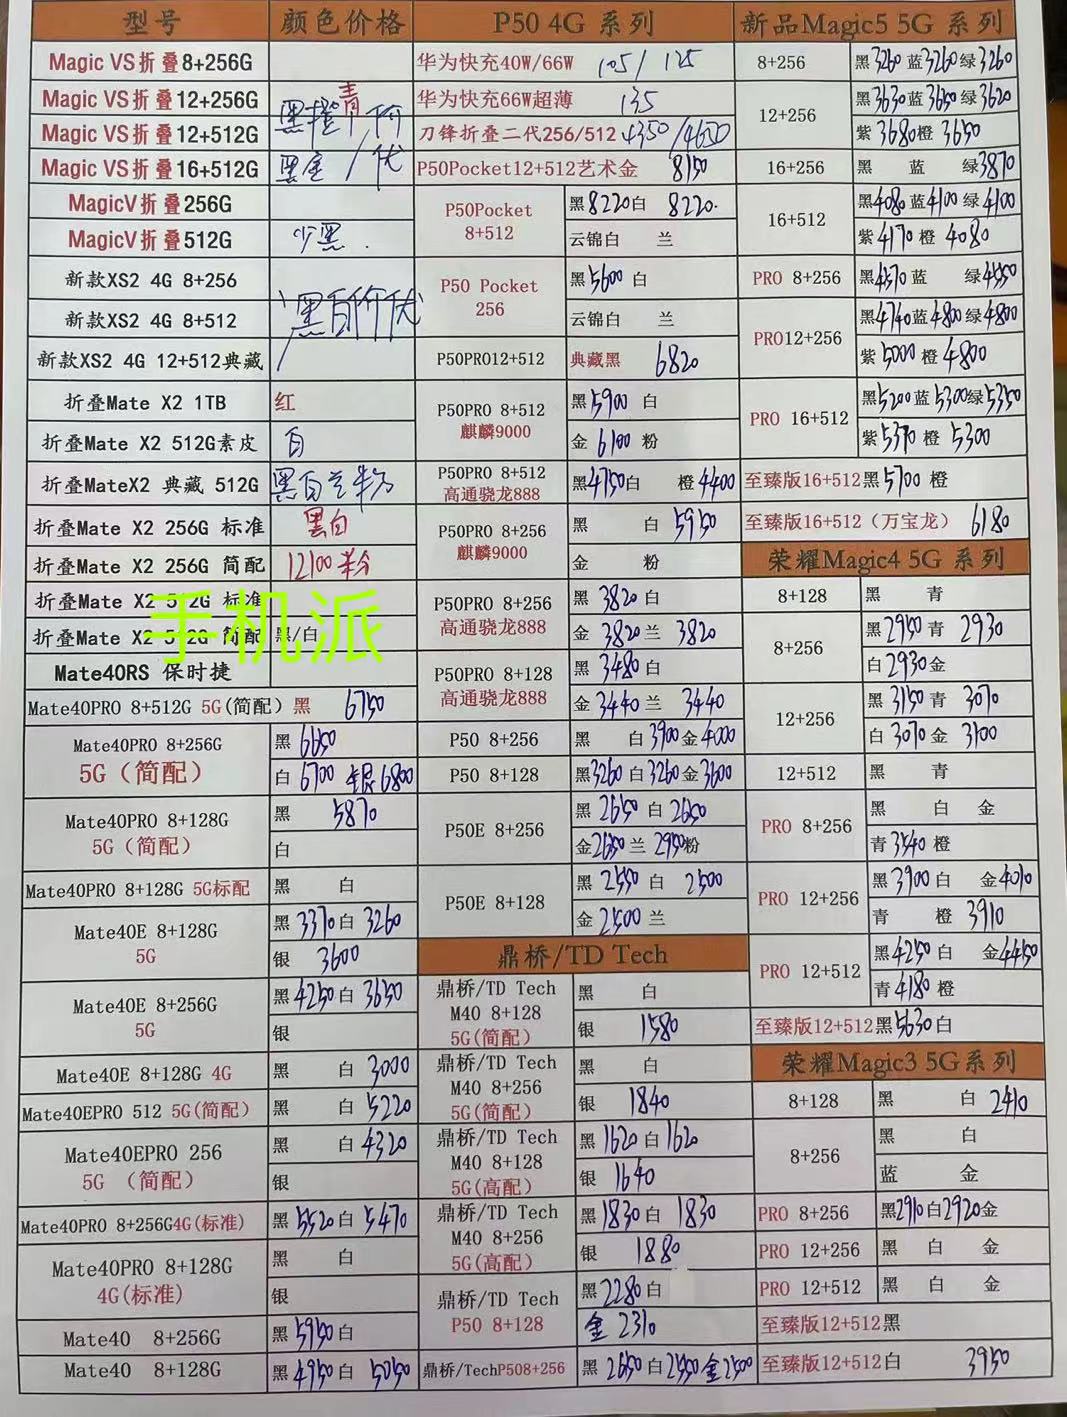 型号 颜色价格
Magic VS折叠8+256G
Magic VS折叠12+256G
Magic VS折叠12+512G 黑橙青/价
Magic VS折叠16+512G 黑 /优
MagicV折叠256G
MagicV折叠512G 少黑.
新款XS2 4G 8+256
新款XS2 4G 8+512 黑百价优
新款XS2 4G 12+512典藏
折叠Mate X2 1TB 红
折叠Mate X2 512G素皮 白
折叠MateX2 典藏 512G 黑白兰粉
折叠Mate X2 256G 标准 黑白
折叠Mate X2 256G 简配 12100粉
折叠Mate X2 512G 标准
折叠Mate X2 512G 简配 黑/白
手机派
Mate40RS 保时捷
Mate40PRO 8+512G 5G(简配) 黑 6750
Mate40PRO 8+256G 黑 6650
5G(简配) 白 6700 银6800
Mate40PRO 8+128G 黑 5870
5G(简配) 白
Mate40PRO 8+128G 5G标配 黑 白
Mate40E 8+128G 黑 3370白 3260
5G 银 3600
Mate40E 8+256G 黑4250白 3650
5G 银
Mate40E 8+128G 4G 黑 白 3000
Mate40EPRO 512 5G(简配) 黑 白 5220
Mate40EPRO 256 黑 白 4320
5G (简配) 银
Mate40PRO 8+256G4G(标准) 黑 5520白 5470
Mate40PRO 8+128G 黑 白
4G(标准) 银
Mate40 8+256G 黑5950白
Mate40 8+128G 黑4950白 5050
P50 4G 系列
华为快充40W/66W 105/ 125
华为快充66W超薄 135
刀锋折叠二代256/512 4350/4650
P50Pocket12+512艺术金 8150
P50Pocket 黑8220白 8220.
8+512 云锦白 兰
P50 Pocket 黑5600 白
256 云锦白 兰
P50PRO12+512 典藏黑 6820
P50PRO 8+512 黑5900 白
麒麟9000 金 6100 粉
P50PRO 8+512
高通骁龙888 黑4750白 橙4400
P50PRO 8+256 黑 白 5950
麒麟9000 金 粉
P50PRO 8+256 黑 3820 白
高通骁龙888 金 3820兰 3820
P50PRO 8+128 黑 3480白
高通骁龙888 金 3440 兰 3440
P50 8+256 黑 白3900金4000
P50 8+128 黑3260 白3260金3600
P50E 8+256 黑 2650 白 2650
金2650兰 2950粉
P50E 8+128 黑 2550 白 2500
金 2500 兰
鼎桥/TD Tech
鼎桥/TD Tech 黑 白
M40 8+128
5G(简配) 银 1580
鼎桥/TD Tech 黑 白
M40 8+256
5G(简配) 银 1840
鼎桥/TD Tech 黑 1620白 1620
M40 8+128
5G(高配) 银 1640
鼎桥/TD Tech 黑1830白 1830
M40 8+256
5G(高配) 银 1880
鼎桥/TD Tech 黑2280白
P50 8+128 金 2310
鼎桥/TechP508+256 黑 2650白2550金2500
新品Magic5 5G 系列
8+256 黑3260蓝3260绿3260
12+256 黑3630蓝3650绿3620
紫3680橙 3650
16+256 黑 蓝 绿3870
16+512 黑4080蓝4100绿4100
紫4170橙 4080
PRO 8+256 黑4570蓝 绿4550
PRO12+256 黑4740蓝4800绿4800
紫5000橙 4800
PRO 16+512 黑5200蓝5300绿5350
紫5370橙 5300
至臻版16+512黑5700 橙
至臻版16+512(万宝龙) 6180
荣耀Magic4 5G 系列
8+128 黑 青
8+256 黑2950青 2930
白2930金
12+256 黑 3150青 3070
白 3070金 3100
12+512 黑 青
PRO 8+256 黑 白 金
青3540橙
PRO 12+256 黑3900白 金4010
青 橙 3910
PRO 12+512 黑4250白 金4450
青4180橙
至臻版12+512黑5630白
荣耀Magic3 5G系列
8+128 黑 白 2410
8+256 黑 白
蓝 金
PRO 8+256 黑2910白2920金
PRO 12+256 黑 白 金
PRO 12+512 黑 白 金
至臻版12+512黑
至臻版12+512白 3950